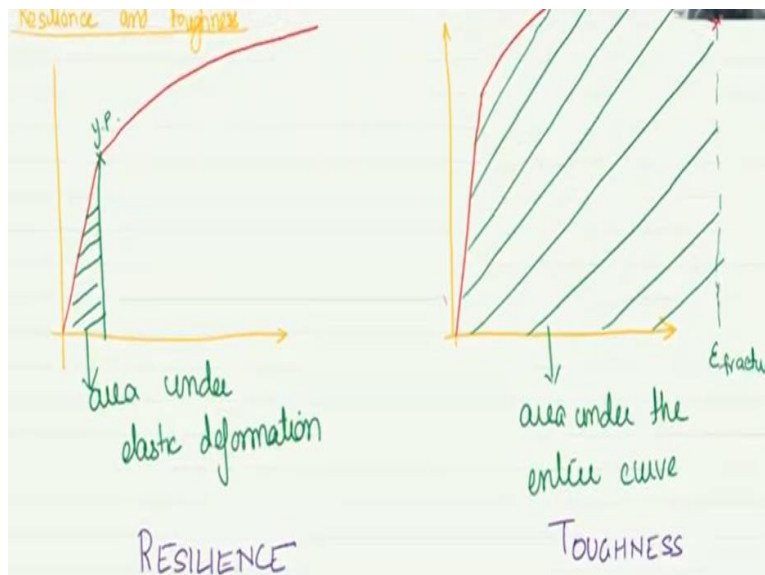 Resiliance and toughness
y.p.
area under
elastic deformation
RESILIENCE
Ɛfractu
area under the
entire curve
TOUGHNESS